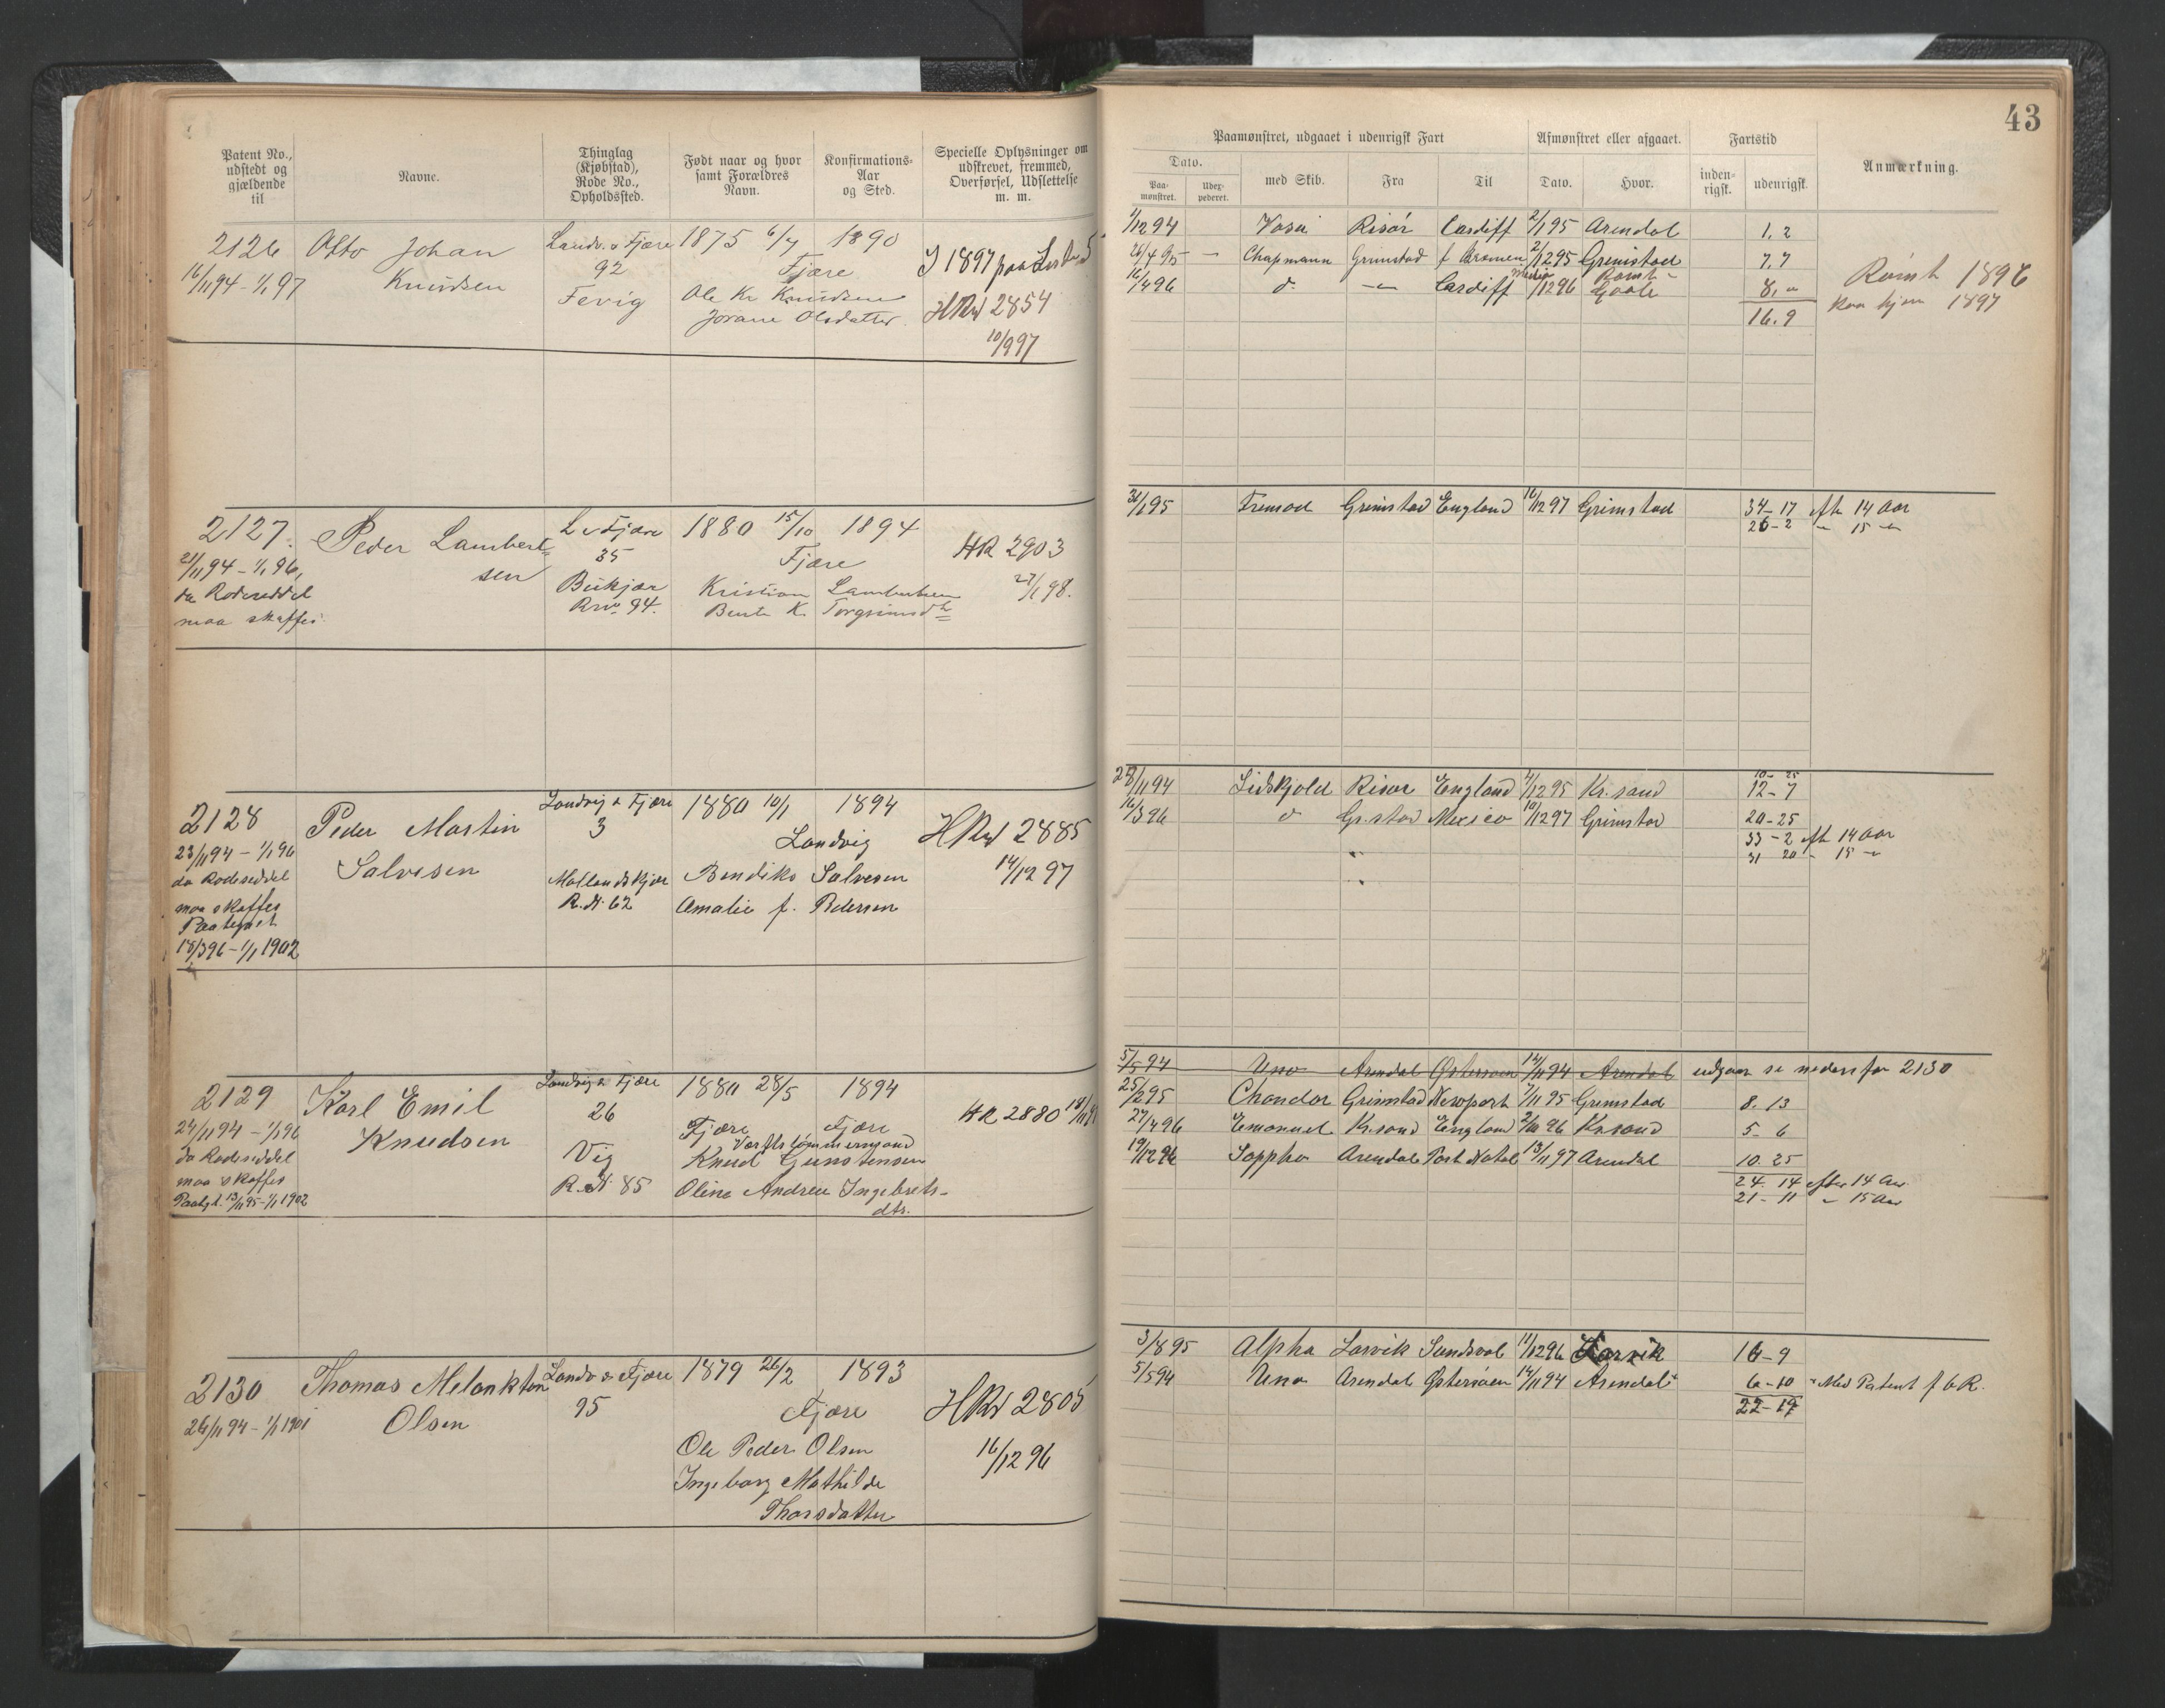 43
Patent No., udstedt og gjældende til
Navne.
Thinglag (Kjøbstad), Rode No., Opholdssted.
Født naar og hvor samt Forældres Navn.
Konfirmations-Aar og Sted.
Specielle Oplysninger om udskrevet, fremmed, Overførsel, Udslettelse m. m.
Paamønstret, udgaaet i udenrigsk Fart
Afmønstret eller afgaaet.
Fartstid
Anmærkning.
Dato.
Paa-mønstret.
Udex-pederet.
med Skib.
Fra
Til
Dato.
Hvor.
inden-rigsk.
udenrigsk.
2126 Otto Johan Landv. & Fjære 1875 6/7 1890
16/11 94 - 1/1 97 Knudsen 92 Fjære
Fevig Ole Kr Knudsen HRul 2854
Jorane Olsdatter 10/9 97
1/12 94 Risør Cardiff 2/1 95 Arendal 1. 2
26/4 95 Chapmann Grimstad f Bremen 2/12 95 Grimstad 7. 7
16/4 96 d. Cardiff /12 96 Goole 8.
16. 9
Rømt 1896
1897
2127. Peder Lambert- L & Fjære 1880 15/10 1894
21/11 94 - 1/1 96, sen 35 Fjære HR 2903
da Rodeseddel Bukjær Kristian Lambertsen 27/1 98.
maa skaffes. 94. Bente K. Torgrimsdtr
31/1 95 Fremad Grimstad England 16/12 97 Grimstad 34-17 eft 14 Aar
26-2 " 15 "
2128 Peder Martin Landvig & Fjære 1880 10/1 1894
23/11 94 - 1/1 96 Salvesen 3 Landvig HRul 2885
da Rodeseddel Mollandskjær Bendiks Salvesen 14/12 97
maa skaffes R. N. 62 Amalie f. Pedersen
Paategnet
18/3 96 - 1/1 1902
28/11 94 Lidskjold Risør England 4/12 95 Kr.sand 12-7
16/3 96 d Gr.stad Mexico 10/12 97 Grimstad 20-25
33-2 eft 14 Aar
31 20 " 15 "
2129 Karl Emil Landvig & Fjære 1880 28/5 1894
24/11 94 - 1/1 96 Knudsen 26 Fjære Fjære HR 2880
da Rodeseddel Vig Værftstømmermand
maa skaffes Knud Gunstensen
Paatgt. 13/11 95 - 1/1 1902 R. N. 85 Oline Andrea Ingebrets-
dtr.
5/5 94 Uno Arendal Østersøen 14/11 94 Arendal udgaar se nedenfor 2130
25/2 95 Chandor Grimstad Newport 7/11 95 Grimstad 8. 13
27/4 96 Emanuel Kr.sand England 96 Kr.sand 5-6
19/12 96 Sappho Arendal Port Natal 13/11 97 Arendal 10. 25
24. 14 efter 14 Aar
21-11 " 15 Aar
2130 Thomas Melankton Landv & Fjære 1879 26/2 1893
26/11 94 - 1/1 1901 Olsen 95 Fjære HRul 2805
Ole Peder Olsen 16/12 96
Ingeborg Mathilde
Thorsdatter
3/8 95 Alpha Larvik Sundsval 11/12 96 Larvik 16-9
5/5 94 Uno Arendal Østersøen 14/11 94 Arendal 6-10 Med Patent f 6 R.
22-19